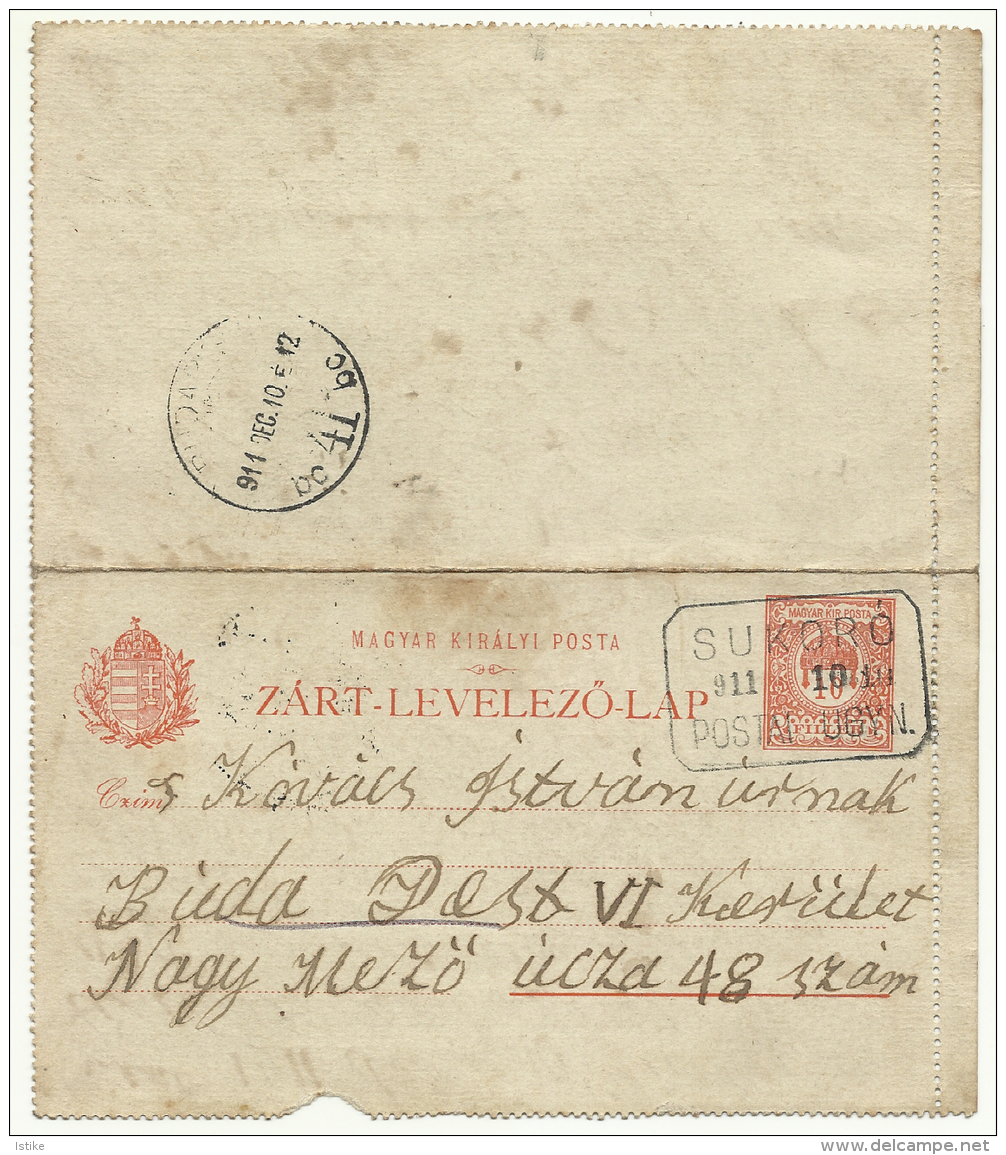 BUDAPEST
911 DEC. 10. 12
41
MAGYAR KIRÁLYI POSTA
ZÁRT-LEVELEZŐ-LAP
MAGYAR KIR. POSTA
10
FILLÉR
SUKORÓ
911 10
POSTAI ÜGYN.
Czim
Kovács Istvánúrnak
Buda Pest VI Kerület
Nagy Mező úcza 48 szám
Istike
www.delcampe.net